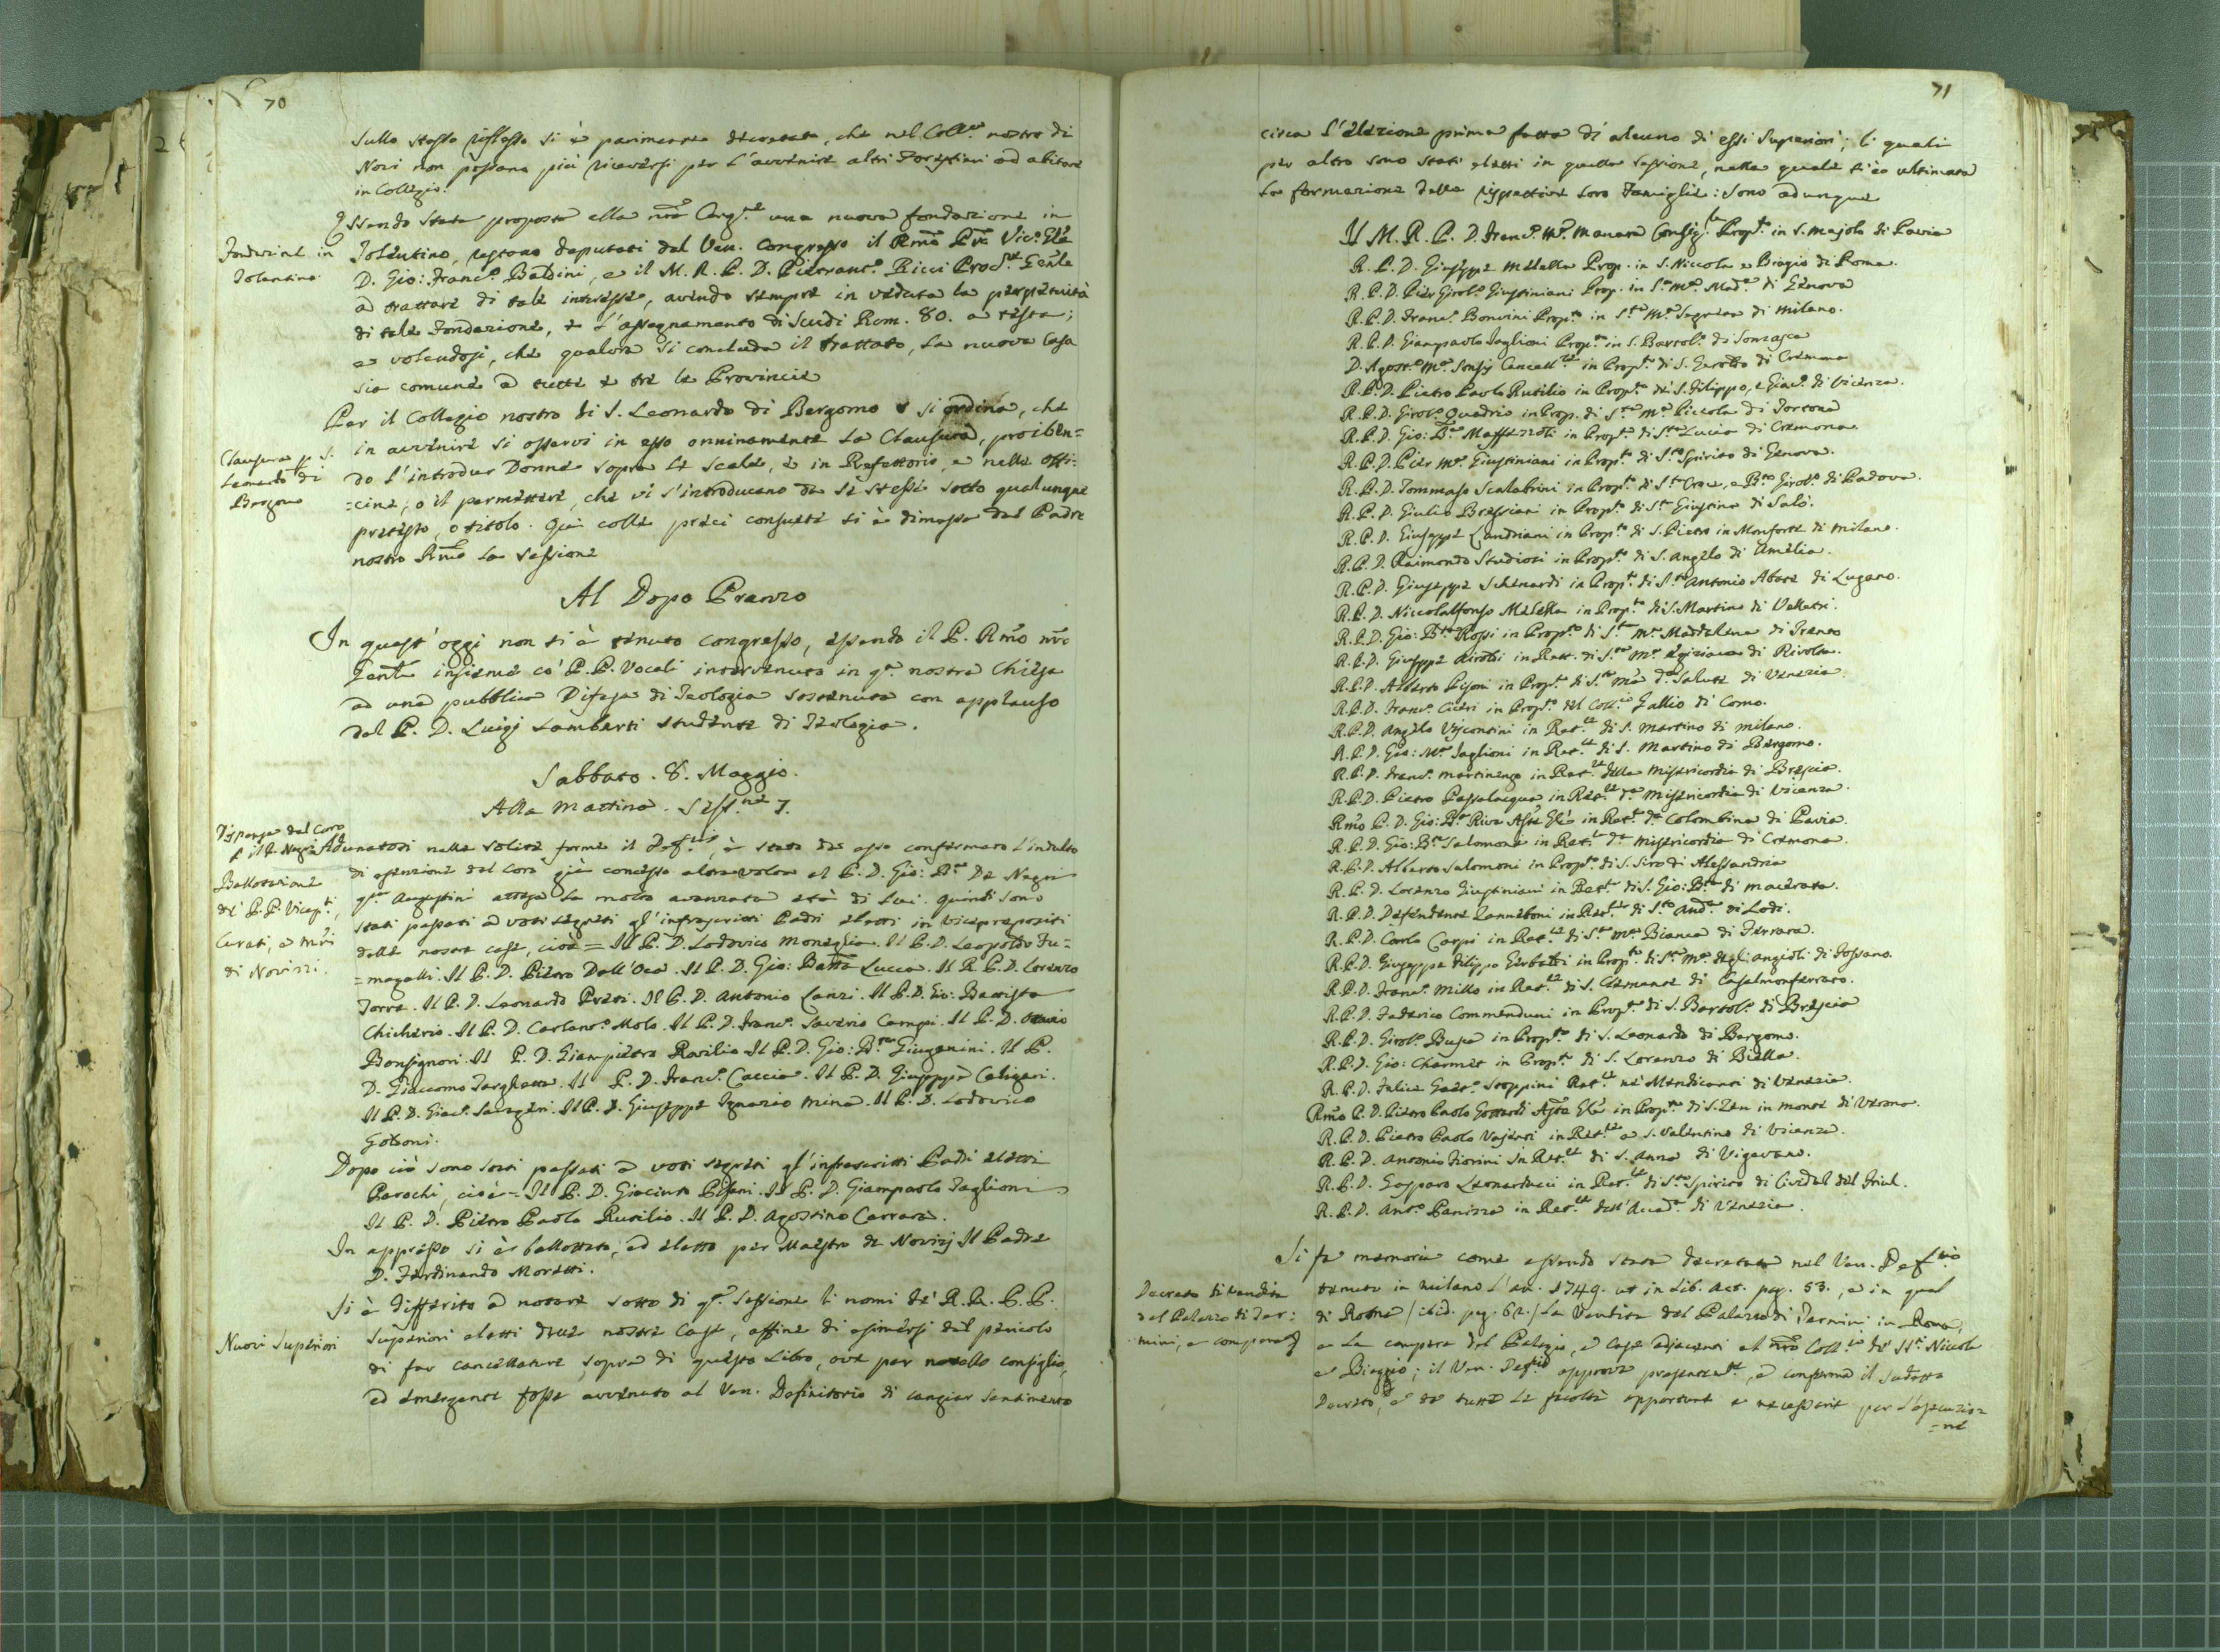 70
sullo stesso riflesso si è parimente decretato, che nel Coll.º nostro di
Novi non possano più riceversi per l'avvenire altri Forestieri ad abitare
in Collegio.
Essendo stata proposta alla nrã Cong.ne una nuova fondazione in
Fondazione in
Tolentino
Tolentino, restano deputati dal Ven. Congresso il Rmõ Pre Vic.º Gñle
D. Gio: Franc.º Baldini, e il M. R. P. D. Pierfranc.º Ricci Proc.re Genle
a trattare di tale interesse, avendo sempre in veduta la perpetuità
di tale Fondazione, e l'assegnamento di Scudi Rom. 80. a testa;
e volendosi, che qualora si concluda il trattato, la nuova Casa
sia comune a tutte e tre le Provincie
Per il Collegio nostro di S. Leonardo di Bergomo si ordina, che
Clausura p S.
Leonardo di
Bergomo
in avvenire si osservi in esso onninamente la Clausura, proiben=
do l'introdur Donne sopra le scale, e in Refettorio, e nelle offi=
=cine, o il permettere, che vi s'introducano da se stesse sotto qualunque
pretesto, o titolo. Quì colle preci consuete si è dimessa dal Padre
nostro Rmõ la sessione
Al Dopo Pranzo
In quest'oggi non si è tenuto congresso, essendo il P. Rmõ nrõ
Genle insieme co' P. P. Vocali intervenuto in q.ª nostra Chiesa
a una pubblica Difesa di Teologia sostenuta con applauso
dal P. D. Luigi Lamberti studente di Teologia.
Sabbato. 8. Maggio.
Alla Mattina. Sess.ne 7.
Dispensa dal Coro
p il P. Negri
Adunatosi nella solita forma il Def.rio, è stato da esso confermato l'indulto
di esenzione dal Coro già concesso altra volta al P. D. Gio: B.ta De Negri
Ballotazione
de' P.P. Vicepti,
Curati, e Mrĩ
di Novizzi.
q.m Augustini attesa la molto avanzata età di lui. Quindi sono
stati passati a voti segreti gl'infrascritti Padri eletti in Viceprepositi
delle nostre case, cioè = Il P. D. Lodovico Moneglia. Il P. D. Leopoldo Fu=
=magalli. Il P. D. Pietro Dall'Oca. Il P. D. Gio: Batta Lucca. Il R. P. D. Lorenzo
Torre. Il P. D. Leonardo Preti. Il P. D. Antonio Lanzi. Il P. D. Gio: Battista
Chicherio. Il P. D. Carlanto.º Molo. Il P. D. Franc.º Saverio Campi. Il P. D. Ottavio
Bonsignori. Il P. D. Giampietro Rovilio. Il P. D. Gio: B.ta Giuganini. Il P.
D. Giacomo Targhetta. Il P. D. Franc.º Caccia. Il P. D. Giuseppe Caligari.
Il P. D. Giac.º Savageri. Il P. D. Giuseppe Ignazio Mina. Il P. D. Lodovico
Golsoni.
Dopo ciò sono stati passati a voti segreti gl'infrascritti Padri eletti
Parochi, cioè = Il P. D. Giacinto Pisani. Il P. D. Giampaolo Taglioni
Il P. D. Pietro Paolo Rusilio. Il P. D. Agostino Carrara.
In appresso si è ballottato, ed eletto per Maestro de Novizj Il Padre
D. Ferdinando Moretti.
Nuovi Superiori
Si è differito a notare sotto di q.ª sessione li nomi de' R. R. P. P.
Superiori eletti delle nostre Case, affine di esimersi dal pericolo
di far cancellature sopra di questo Libro, ove per novello consiglio,
ed emergente fosse avvenuto al Ven. Definitorio di cangiar sentimento
71
circa l'elezione prima fatta di alcuno di essi Superiori; li quali
per altro sono stati eletti in quella sessione, nella quale si è ultimata
la formazione delle rispettive loro Famiglie: sono adunque
Il M. R. P. D. Franc.º M.ª Manara Consig.re Prop.to in S. Majolo di Pavia
R. P. D. Giuseppe Melella Prop. in S. Niccola e Biagio di Roma.
R. P. D. Pier Girol.º Giustiniani Prop. in S.ª M.ª Mad.ª di Genova
R. P. D. Franc.º Bonvini Prop.to in S.ta M.ª Segreta di Milano.
R. P. D. Giampaolo Taglioni Prop.to in S. Bartol.º di Somasca
D. Agost.º M.ª Sonsij Cancell.re in Prop.to di S. Geroldo di Cremona
R. P. D. Pietro Paolo Rusilio in Prop.to de' S. Filippo, e Giac.º di Vicenza.
R. P. D. Girol.º Quadrio in Prop. di S.ta M.ª Piccola di Tortona
R. P. D. Gio: B.ta Maffezzoli in Prop.to di S.ta Lucia di Cremona.
R. P. D. Pier M.ª Giustiniani in Prop.to di S.to Spirito di Genova.
R. P. D. Tommaso Scalabrini in Prop.to di S.ta Croce, e B.to Girol.º di Padova.
R. P. D. Giulio Bressiani in Prop.to di S.ta Giustina di Salò.
R. P. D. Giuseppe Landriani in Prop.to di S. Pietro in Monforte di Milano.
R. P. D. Raimondo Studiosi in Prop.to di S. Angelo di Amelia.
R. P. D. Giuseppe Schenardi in Prop.to di S.to Antonio Abate di Lugano.
R. P. D. Niccolalfonso Melella in Prop.to di S. Martino di Velletri.
R. P. D. Gio: B.ta Rossi in Prop.to di S.ta M.ª Maddalena di Trento
R. P. D. Giuseppe Airoldi in Rett. di S.ta M.ª Egiziaca di Rivolta.
R. P. D. Alberto Pisoni in Prop.to di S.ta M.ª d.ª Salute di Venezia.
R. P. D. Franc.º Ciceri in Prop.to del Coll.io Gallio di Como.
R. P. D. Angelo Viscontini in Ret.re di S. Martino di Milano.
R. P. D. Gio: M.ª Taglioni in Ret.re di S. Martino di Bergomo.
R. P. D. Franc.º Martinengo in Ret.re della Misericordia di Brescia.
R. P. D. Pietro Passalacqua in Ret.re d.ª Misericordia di Vicenza.
Rmõ P. D. Gio: B.ta Riva Asste Gle in Ret.re d.ª Colombina di Pavia.
R. P. D. Gio: B.ta Salomone in Ret.re d.ª Misericordia di Cremona.
R. P. D. Alberto Salomoni in Prop.to di S. Siro di Alessandria
R. P. D. Lorenzo Giustiniani in Ret.re di S. Gio: B.ta di Macerata.
R. P. D. Defendente Zanneboni in Ret.re di S.to And.ª di Lodi.
R. P. D. Carlo Carpi in Ret.re di S.ta M.ª Bianca di Ferrara.
R. P. D. Giuseppe Filippo Gerbaldi in Prop.to di S.ta M.ª degli Angioli di Fossano.
R. P. D. Franc.º Millo in Ret.re di S. Clemente di Casalmonferrato.
R. P. D. Federico Commenduni in Prop.to di S. Bartol.º di Brescia
R. P. D. Girol.º Busca in Prop.to di S. Leonardo di Bergomo.
R. P. D. Gio: Charmet in Prop.to di S. Lorenzo di Biella.
R. P. D. Felice Gaet.º Stoppini Ret.re ne' Mendicanti di Venezia.
Rmõ P. D. Pietro Paolo Gottardi Asste Gle in Prop.to di S. Zen in Monte di Verona.
R. P. D. Pietro Paolo Vajenti in Ret.re a S. Valentino di Vicenza.
R. P. D. Antonio Fiorini in Ret.re di S. Anna di Vigevano.
R. P. D. Gasparo Leonarducci in Ret.re di S.to Spirito di Cividal del Friul.
R. P. D. Ant.º Panizza in Ret.re dell'Accad.ª di Venezia.
Si fa memoria come essendo stata decretata nel Ven. Def.rio
Decreto di vendita
del Palazzo di Ter=
mini, e compera
tenuto in Milano l'an. 1749. ut in Lib. Act. pag. 53., e in quel
di Roma / ibid. pag. 62. / la vendita del Palazzo di Termini in Roma,
e la compera del Palagio, e Case adjacenti al nrõ Coll.io de' SS.ti Niccola
e Biaggio; il Ven. Def.rio approva presentem.te, e conferma il sudetto
Decreto, e dà tutte le facoltà opportune e necessarie per l'esecuzio=
=ne